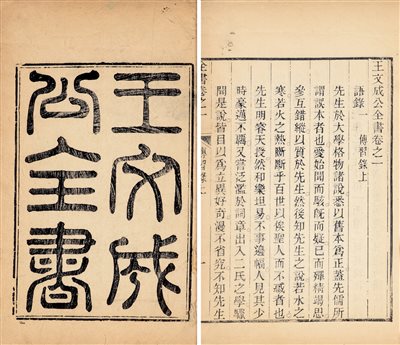 王文成公全書卷之一
語錄一　傳習錄上
先生於大學格物諸說悉以舊本爲正蓋先儒所
謂誤本者也愛始聞而駭旣而疑已而殫精竭思
參互錯縱以質於先生然後知先生之說若水之
寒若火之熱斷斷乎百世以俟聖人而不惑者也
先生明睿天授然和樂坦易不事邊幅人見其少
時豪邁不羈又嘗泛濫於詞章出入二氏之學驟
聞是說皆目以爲立異好奇漫不省究不知先生
全書卷之一
王文成
公全書